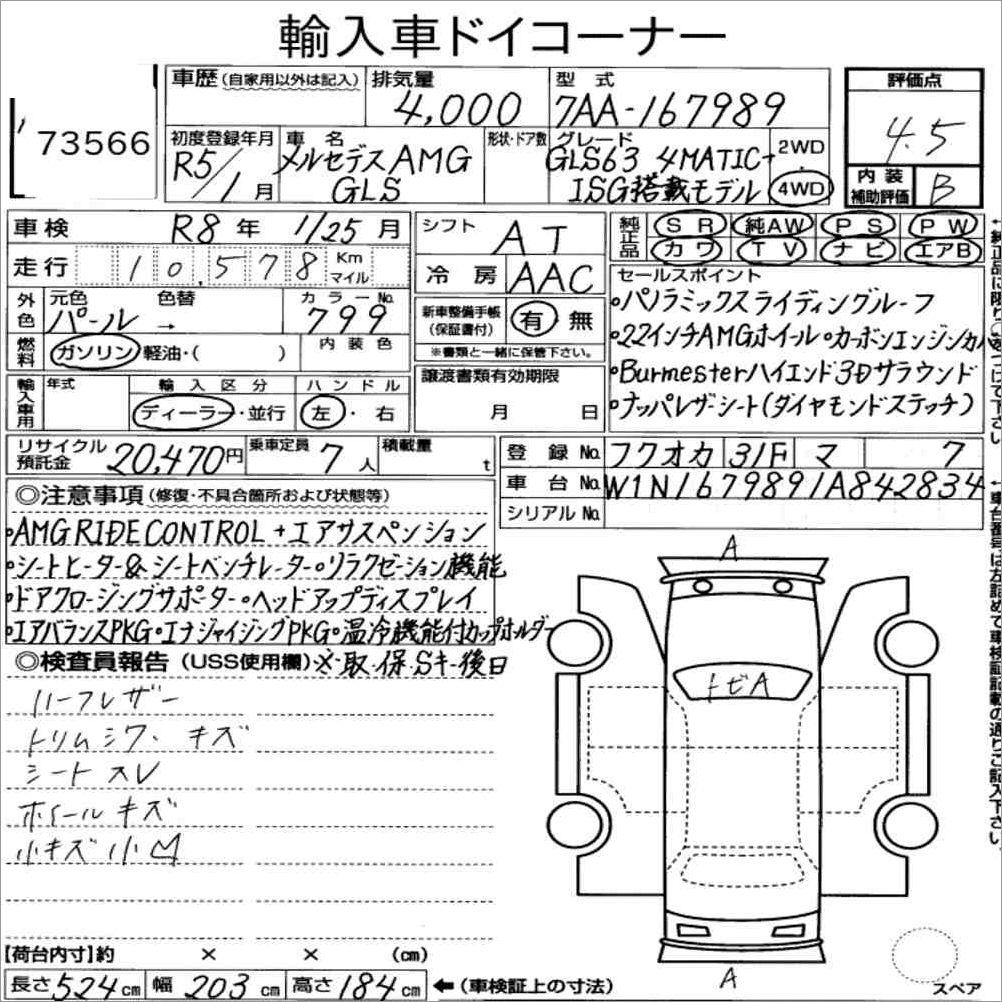 輸入車ドイコーナー
73566
車歴(自家用以外は記入)
排気量
4,000
型式
7AA-167989
評価点
4.5
初度登録年月
R5/1月
車名
メルセデスAMG
GLS
形状・ドア数
グレード
GLS63 4MATIC+
ISG搭載モデル
2WD
・
4WD
内装
補助評価
B
車検
R8年 1/25月
シフト
AT
純正品
SR 純AW PS PW
カワ TV ナビ エアB
走行
10,578
Km
マイル
冷房
AAC
セールスポイント
•パノラミックスライディングルーフ
•22インチAMGホイール•カーボンエンジンカバ
•Burmesterハイエンド3Dサラウンド
•ナッパレザーシート(ダイヤモンドステッチ)
外色
元色
パール
色替
→
カラーNo.
799
新車整備手帳
(保証書付)
有 無
※書類と一緒に保管下さい。
燃料
ガソリン・軽油・( )
内装色
輸入車用
年式
輸入区分
ディーラー・並行
ハンドル
左・右
譲渡書類有効期限
月 日
リサイクル
預託金
20,470円
乗車定員
7人
積載量
t
登録No.
フクオカ 31F マ 7
車台No.
W1N1679891A842834
シリアルNo.
◎注意事項(修復・不具合箇所および状態等)
•AMG RIDE CONTROL+エアサスペンション
•シートヒーター&シートベンチレーター•リラクゼーション機能
•ドアクロージングサポーター•ヘッドアップディスプレイ
•エアバランスPKG•エナジャイジングPKG•温冷機能付カップホルダー
◎検査員報告(USS使用欄)※・取・保・Sキー後日
ハーフレザー
トリムシワ・キズ
シートスレ
ホイールキズ
小キズ小凹
A
トビA
A
【荷台内寸】約 × × (cm)
長さ524cm 幅203cm 高さ184cm
←(車検証上の寸法)
スペア